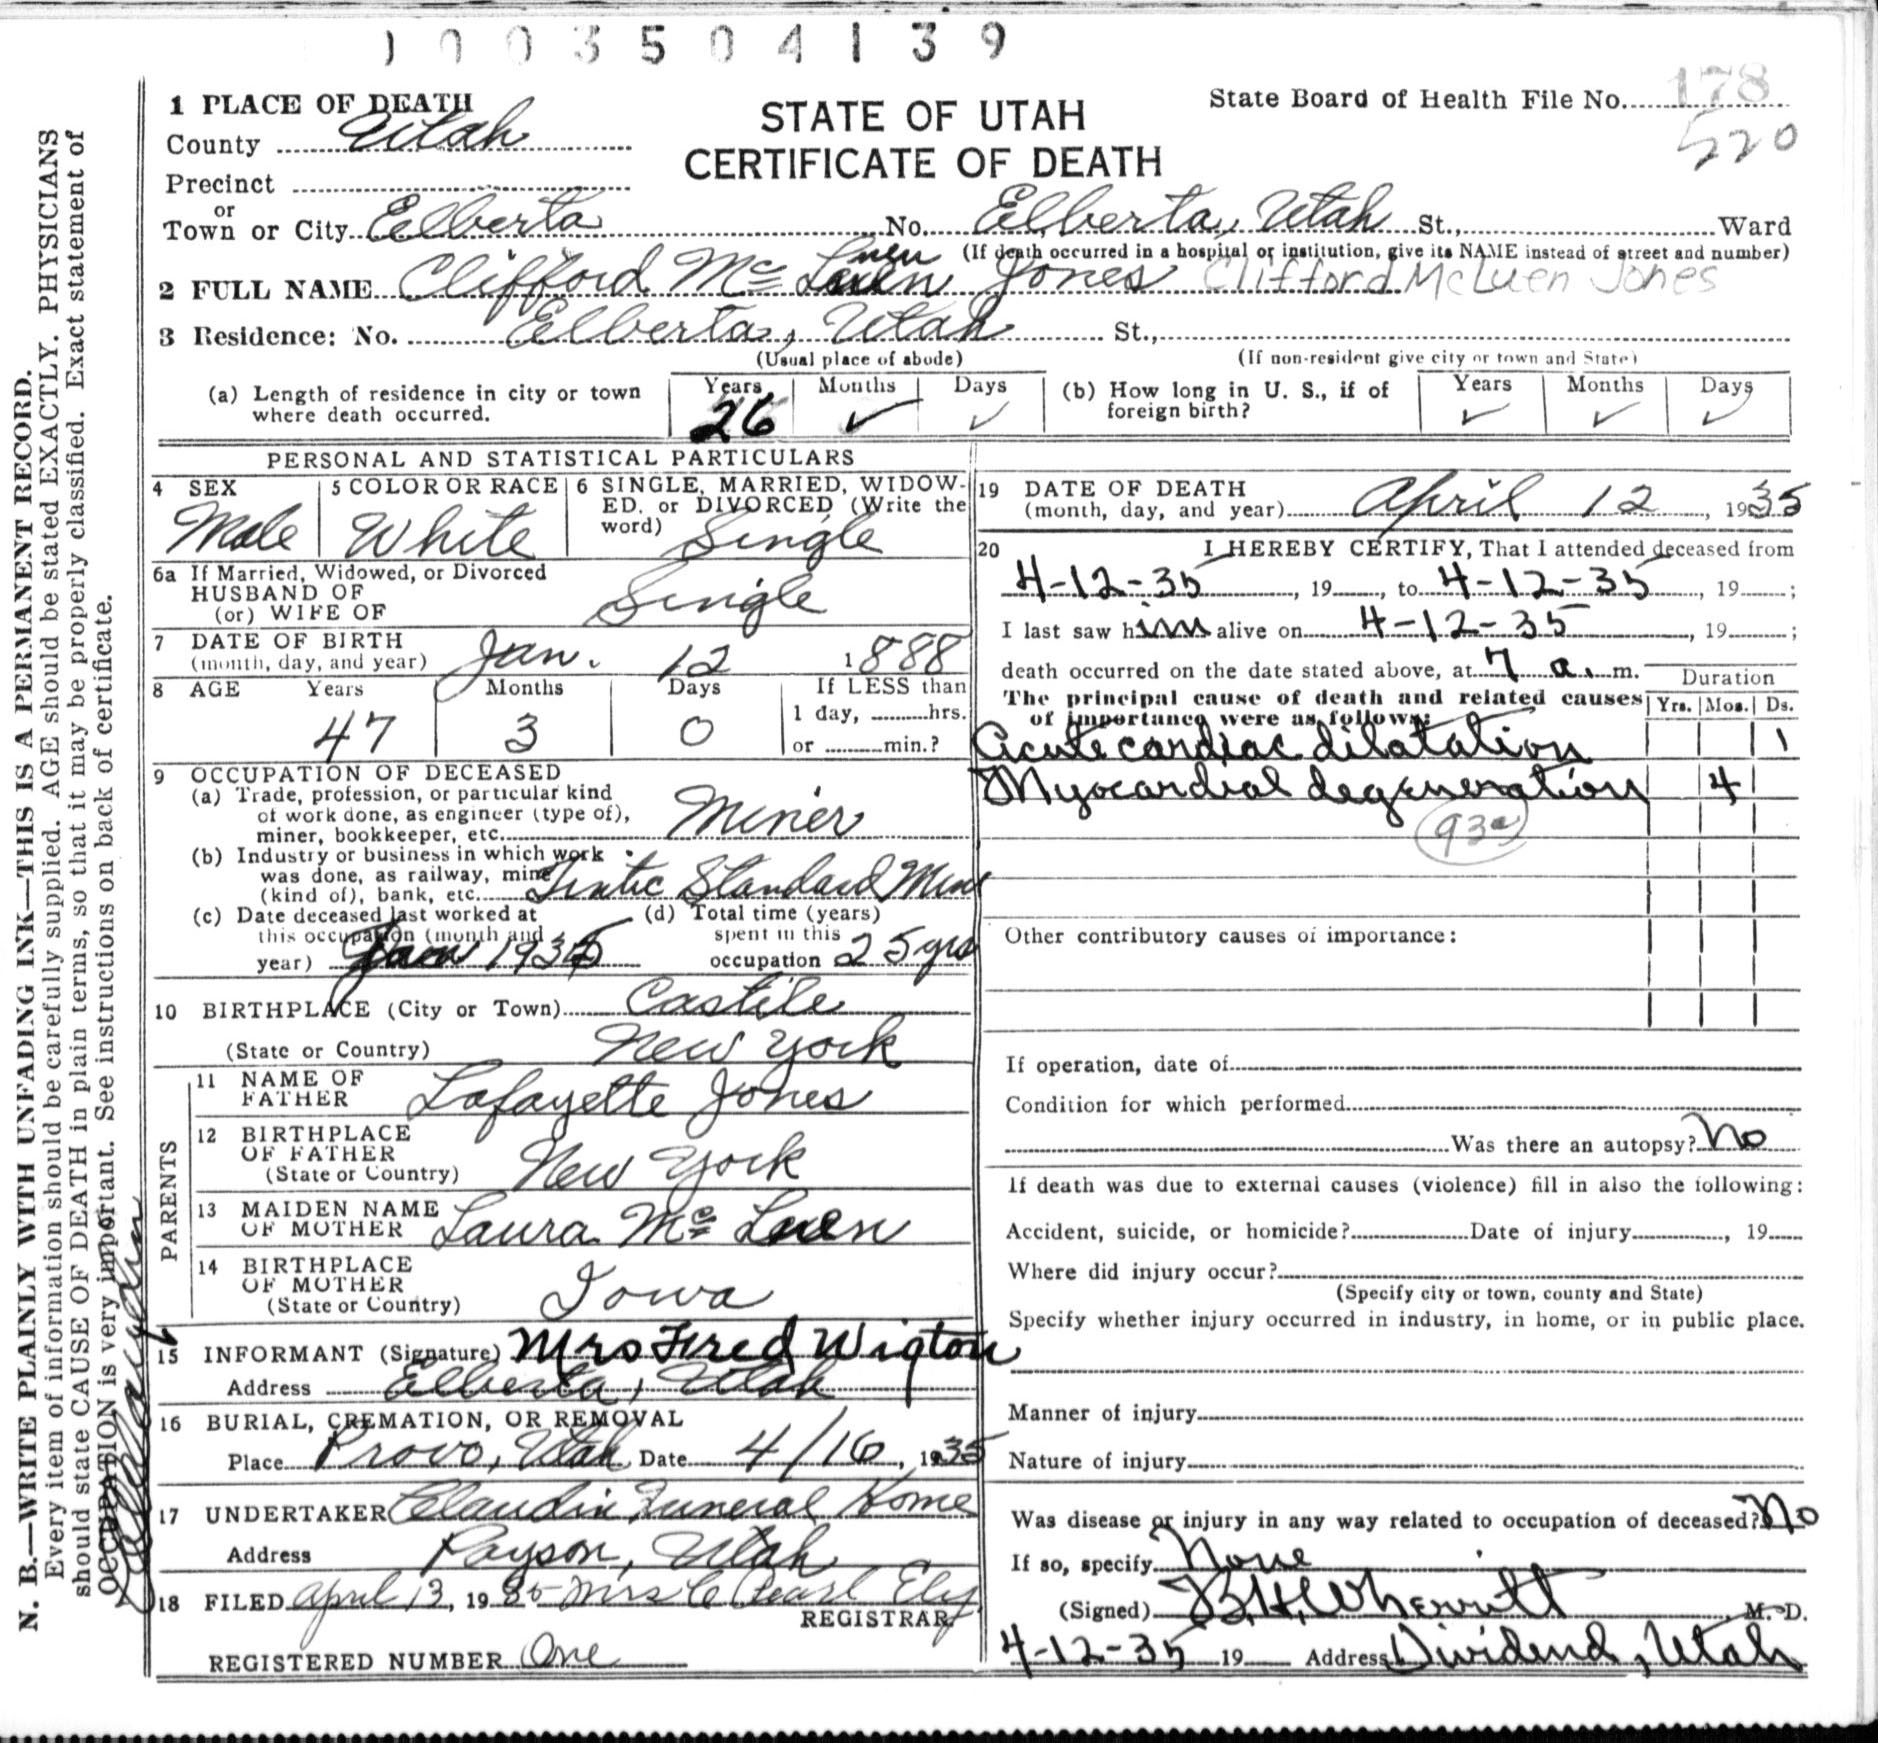 1003504139
1 PLACE OF DEATH
STATE OF UTAH
CERTIFICATE OF DEATH
State Board of Health File No. 178
520
County Utah
Precinct
or
Town or City Elberta No. Elberta, Utah St., Ward
(If death occurred in a hospital or institution, give its NAME instead of street and number)
2 FULL NAME Clifford Mc Luen Jones Clifford McLuen Jones
3 Residence: No. Elberta, Utah St.,
(Usual place of abode) (If non-resident give city or town and State)
(a) Length of residence in city or town where death occurred. Years 26 Months ✓ Days ✓
(b) How long in U. S., if of foreign birth? Years ✓ Months ✓ Days ✓
PERSONAL AND STATISTICAL PARTICULARS
4 SEX Male
5 COLOR OR RACE White
6 SINGLE, MARRIED, WIDOWED, or DIVORCED (Write the word) Single
6a If Married, Widowed, or Divorced
HUSBAND OF
(or) WIFE OF Single
7 DATE OF BIRTH
(month, day, and year) Jan. 12 1888
8 AGE Years 47 Months 3 Days 0 If LESS than
1 day, hrs.
or min.?
9 OCCUPATION OF DECEASED
(a) Trade, profession, or particular kind
of work done, as engineer (type of),
miner, bookkeeper, etc. Miner
(b) Industry or business in which work
was done, as railway, mine
(kind of), bank, etc. Tintic Standard Mine
(c) Date deceased last worked at
this occupation (month and
year) Jan 1935
(d) Total time (years)
spent in this
occupation 25 yrs
10 BIRTHPLACE (City or Town) Castile
(State or Country) New York
PARENTS
11 NAME OF
FATHER Lafayette Jones
12 BIRTHPLACE
OF FATHER
(State or Country) New York
13 MAIDEN NAME
OF MOTHER Laura Mc Luen
14 BIRTHPLACE
OF MOTHER
(State or Country) Iowa
15 INFORMANT (Signature) Mrs Fred Wigton
Address Elberta, Utah
16 BURIAL, CREMATION, OR REMOVAL
Place Provo, Utah Date 4/16, 1935
17 UNDERTAKER Claudin Funeral Home
Address Payson, Utah
18 FILED April 13, 1935 Mrs C Pearl Ely
REGISTRAR
REGISTERED NUMBER One
19 DATE OF DEATH
(month, day, and year) April 12, 1935
20 I HEREBY CERTIFY, That I attended deceased from
4-12-35, 19 , to 4-12-35, 19 ;
I last saw him alive on 4-12-35, 19 ;
death occurred on the date stated above, at 7 a. m.
The principal cause of death and related causes
of importance were as follows:
Duration
Yrs. Mos. Ds.
Acute cardiac dilatation 1
Myocardial degeneration 4
Other contributory causes of importance:
If operation, date of
Condition for which performed
Was there an autopsy? No
If death was due to external causes (violence) fill in also the following:
Accident, suicide, or homicide? Date of injury , 19
Where did injury occur?
(Specify city or town, county and State)
Specify whether injury occurred in industry, in home, or in public place.
Manner of injury
Nature of injury
Was disease or injury in any way related to occupation of deceased? No
If so, specify None
(Signed) B.H. Wherritt M. D.
4-12-35 19 Address Dividend, Utah
N. B.—WRITE PLAINLY WITH UNFADING INK—THIS IS A PERMANENT RECORD.
Every item of information should be carefully supplied. AGE should be stated EXACTLY. PHYSICIANS
should state CAUSE OF DEATH in plain terms, so that it may be properly classified. Exact statement of
OCCUPATION is very important. See instructions on back of certificate.